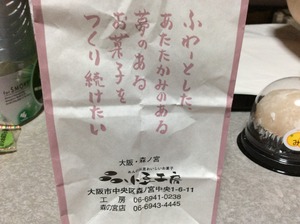 ふわーとした
あたたかみのある
夢のある
お菓子を
つくり続けたい
大阪・森ノ宮
工房
大阪市中央区森ノ宮中央1-6-11
工房 06-6941-0238
森の宮店 06-6943-4445